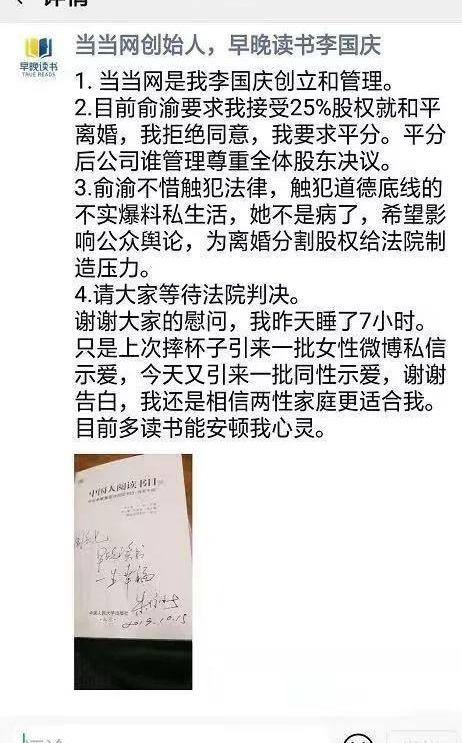 详情
当当网创始人，早晚读书李国庆
早晚读书
TRUE READS
1. 当当网是我李国庆创立和管理。
2.目前俞渝要求我接受25%股权就和平
离婚，我拒绝同意，我要求平分。平分
后公司谁管理尊重全体股东决议。
3.俞渝不惜触犯法律，触犯道德底线的
不实爆料私生活，她不是病了，希望影
响公众舆论，为离婚分割股权给法院制
造压力。
4.请大家等待法院判决。
谢谢大家的慰问，我昨天睡了7小时。
只是上次摔杯子引来一批女性微博私信
示爱，今天又引来一批同性示爱，谢谢
告白，我还是相信两性家庭更适合我。
目前多读书能安顿我心灵。
中国人阅读书目
早晚读书
一生幸福
中国人民大学出版社
2019.10.15